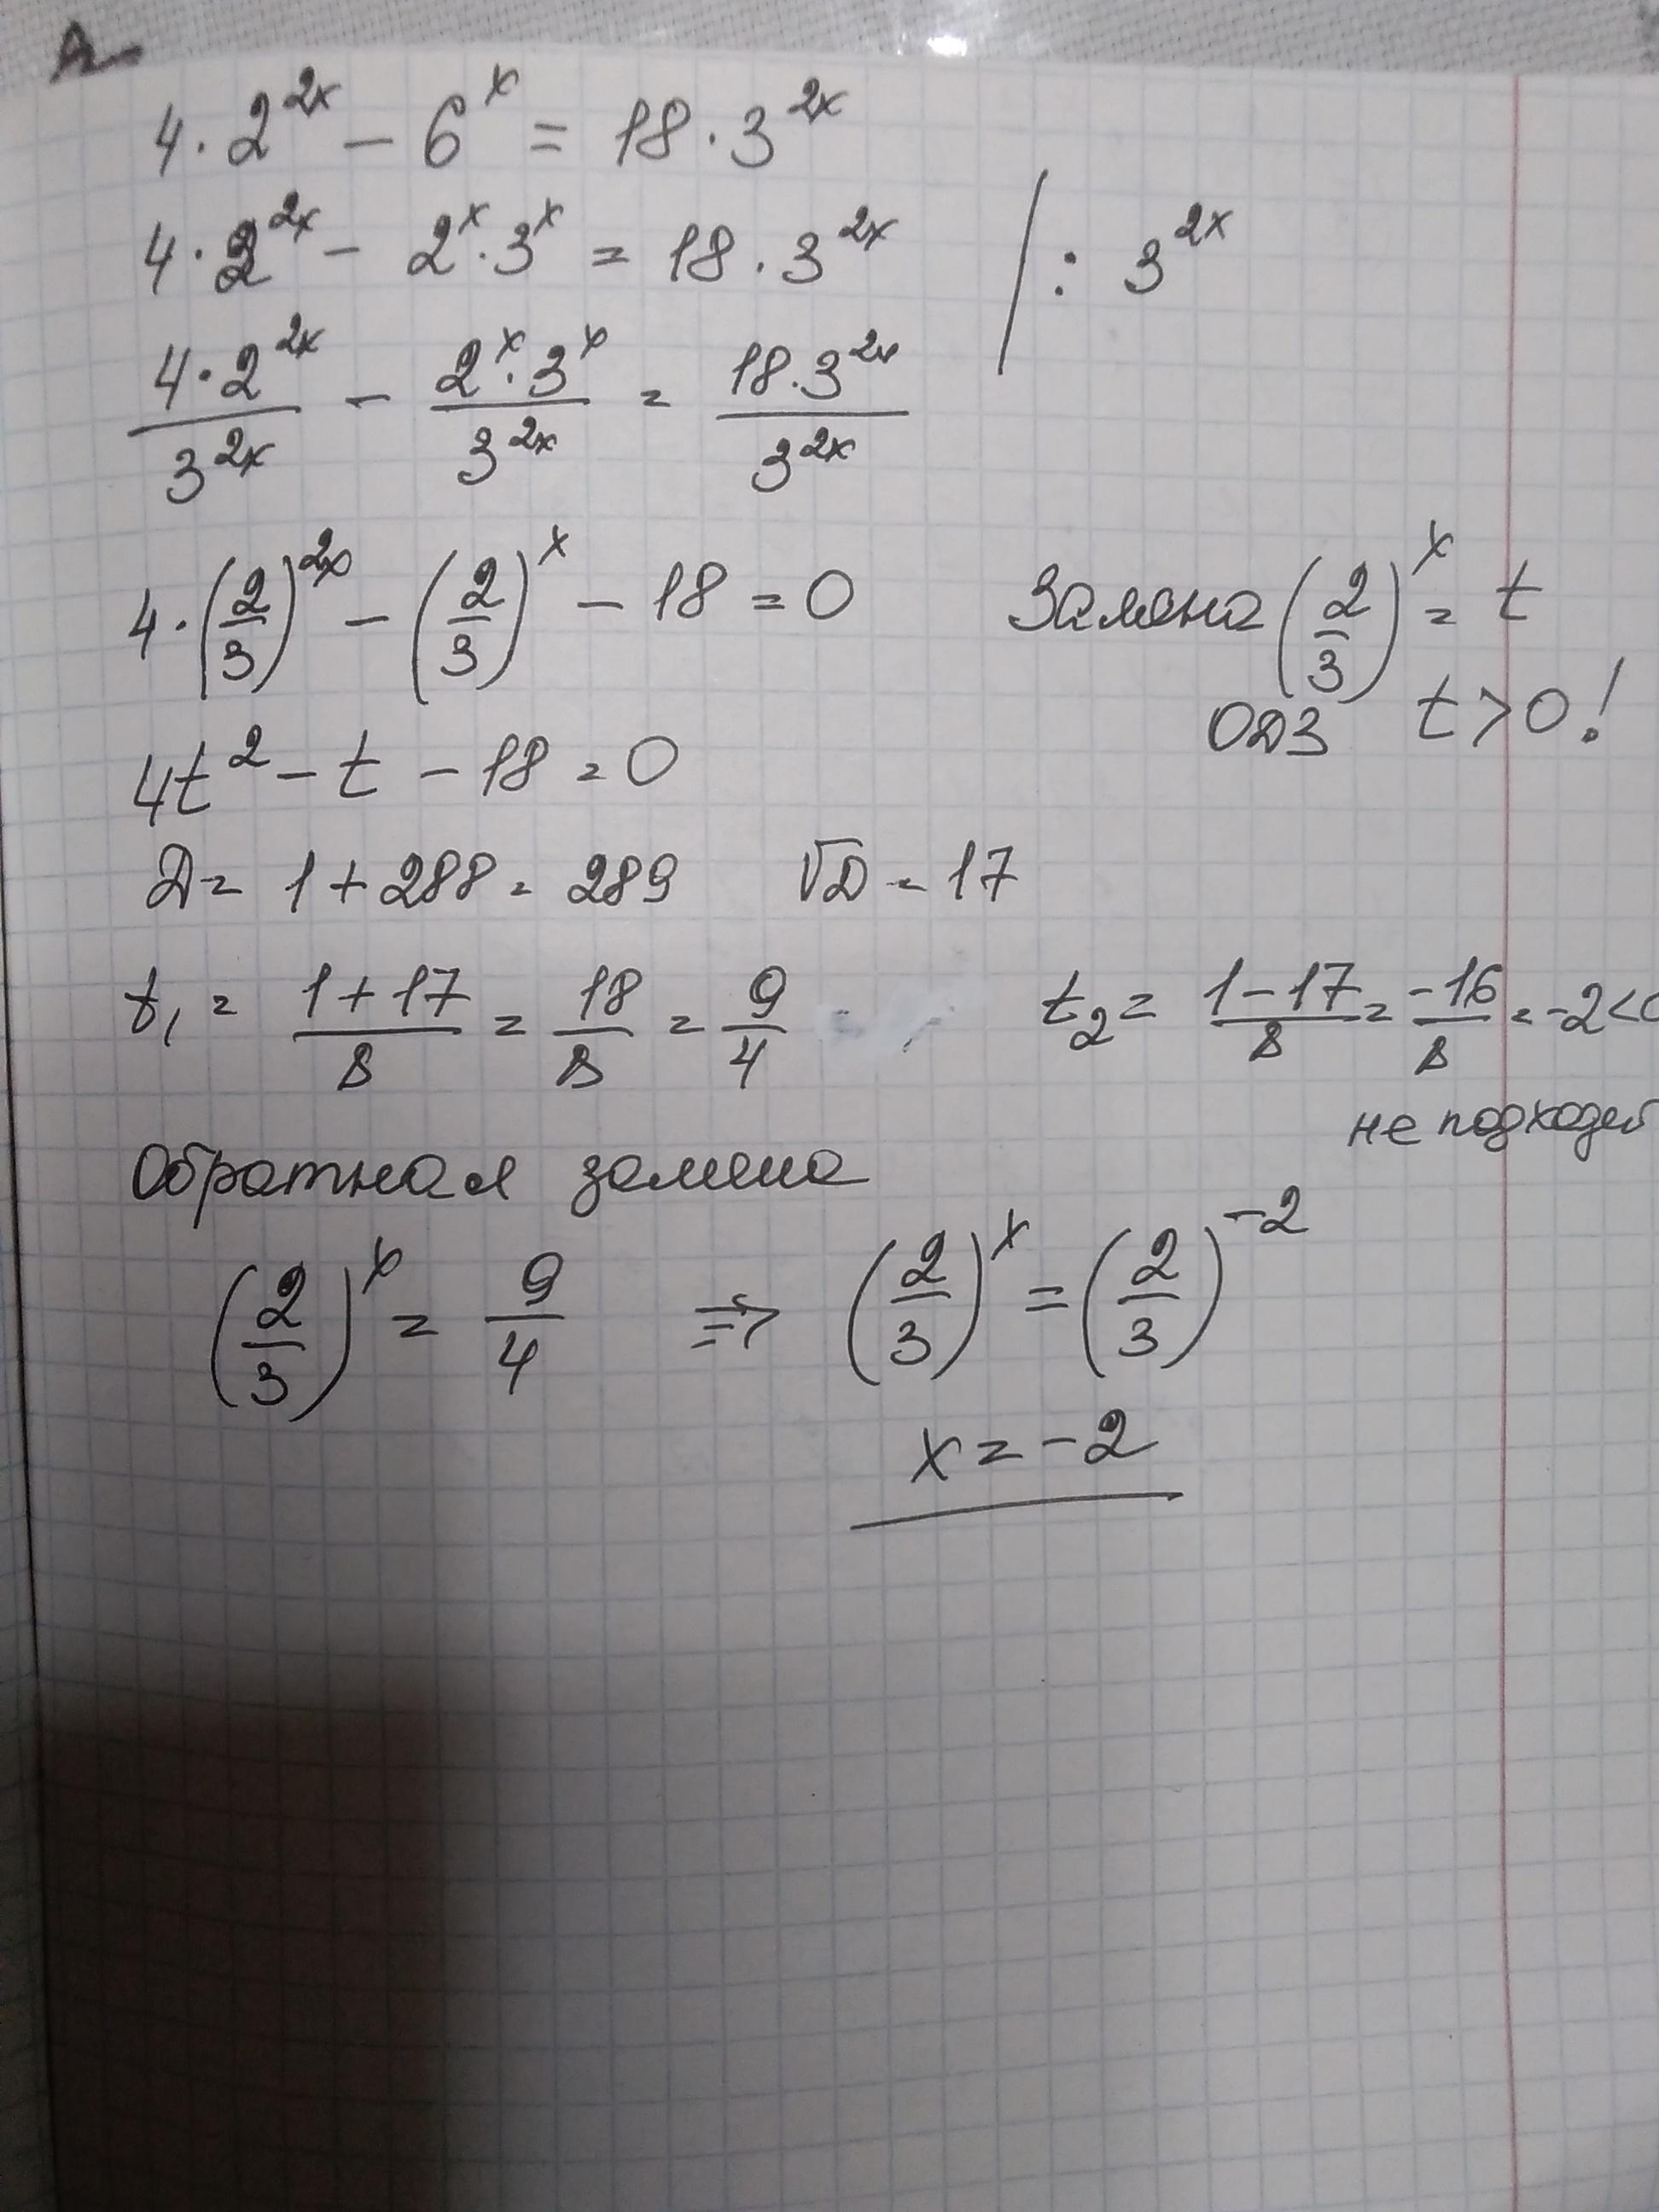 4·2^{2x} − 6^x = 18·3^{2x}
4·2^{2x} − 2^x·3^x = 18·3^{2x} | : 3^{2x}
\frac{4·2^{2x}}{3^{2x}} − \frac{2^x·3^x}{3^{2x}} = \frac{18·3^{2x}}{3^{2x}}
4·(\frac{2}{3})^{2x} − (\frac{2}{3})^x − 18 = 0 Замена (\frac{2}{3})^x = t
ОДЗ t > 0!
4t^2 − t − 18 = 0
D = 1 + 288 = 289 √D = 17
t_1 = \frac{1+17}{8} = \frac{18}{8} = \frac{9}{4} t_2 = \frac{1−17}{8} = \frac{−16}{8} = −2 < 0
не подходит
Обратная замена
(\frac{2}{3})^x = \frac{9}{4} ⇒ (\frac{2}{3})^x = (\frac{2}{3})^{−2}
x = −2